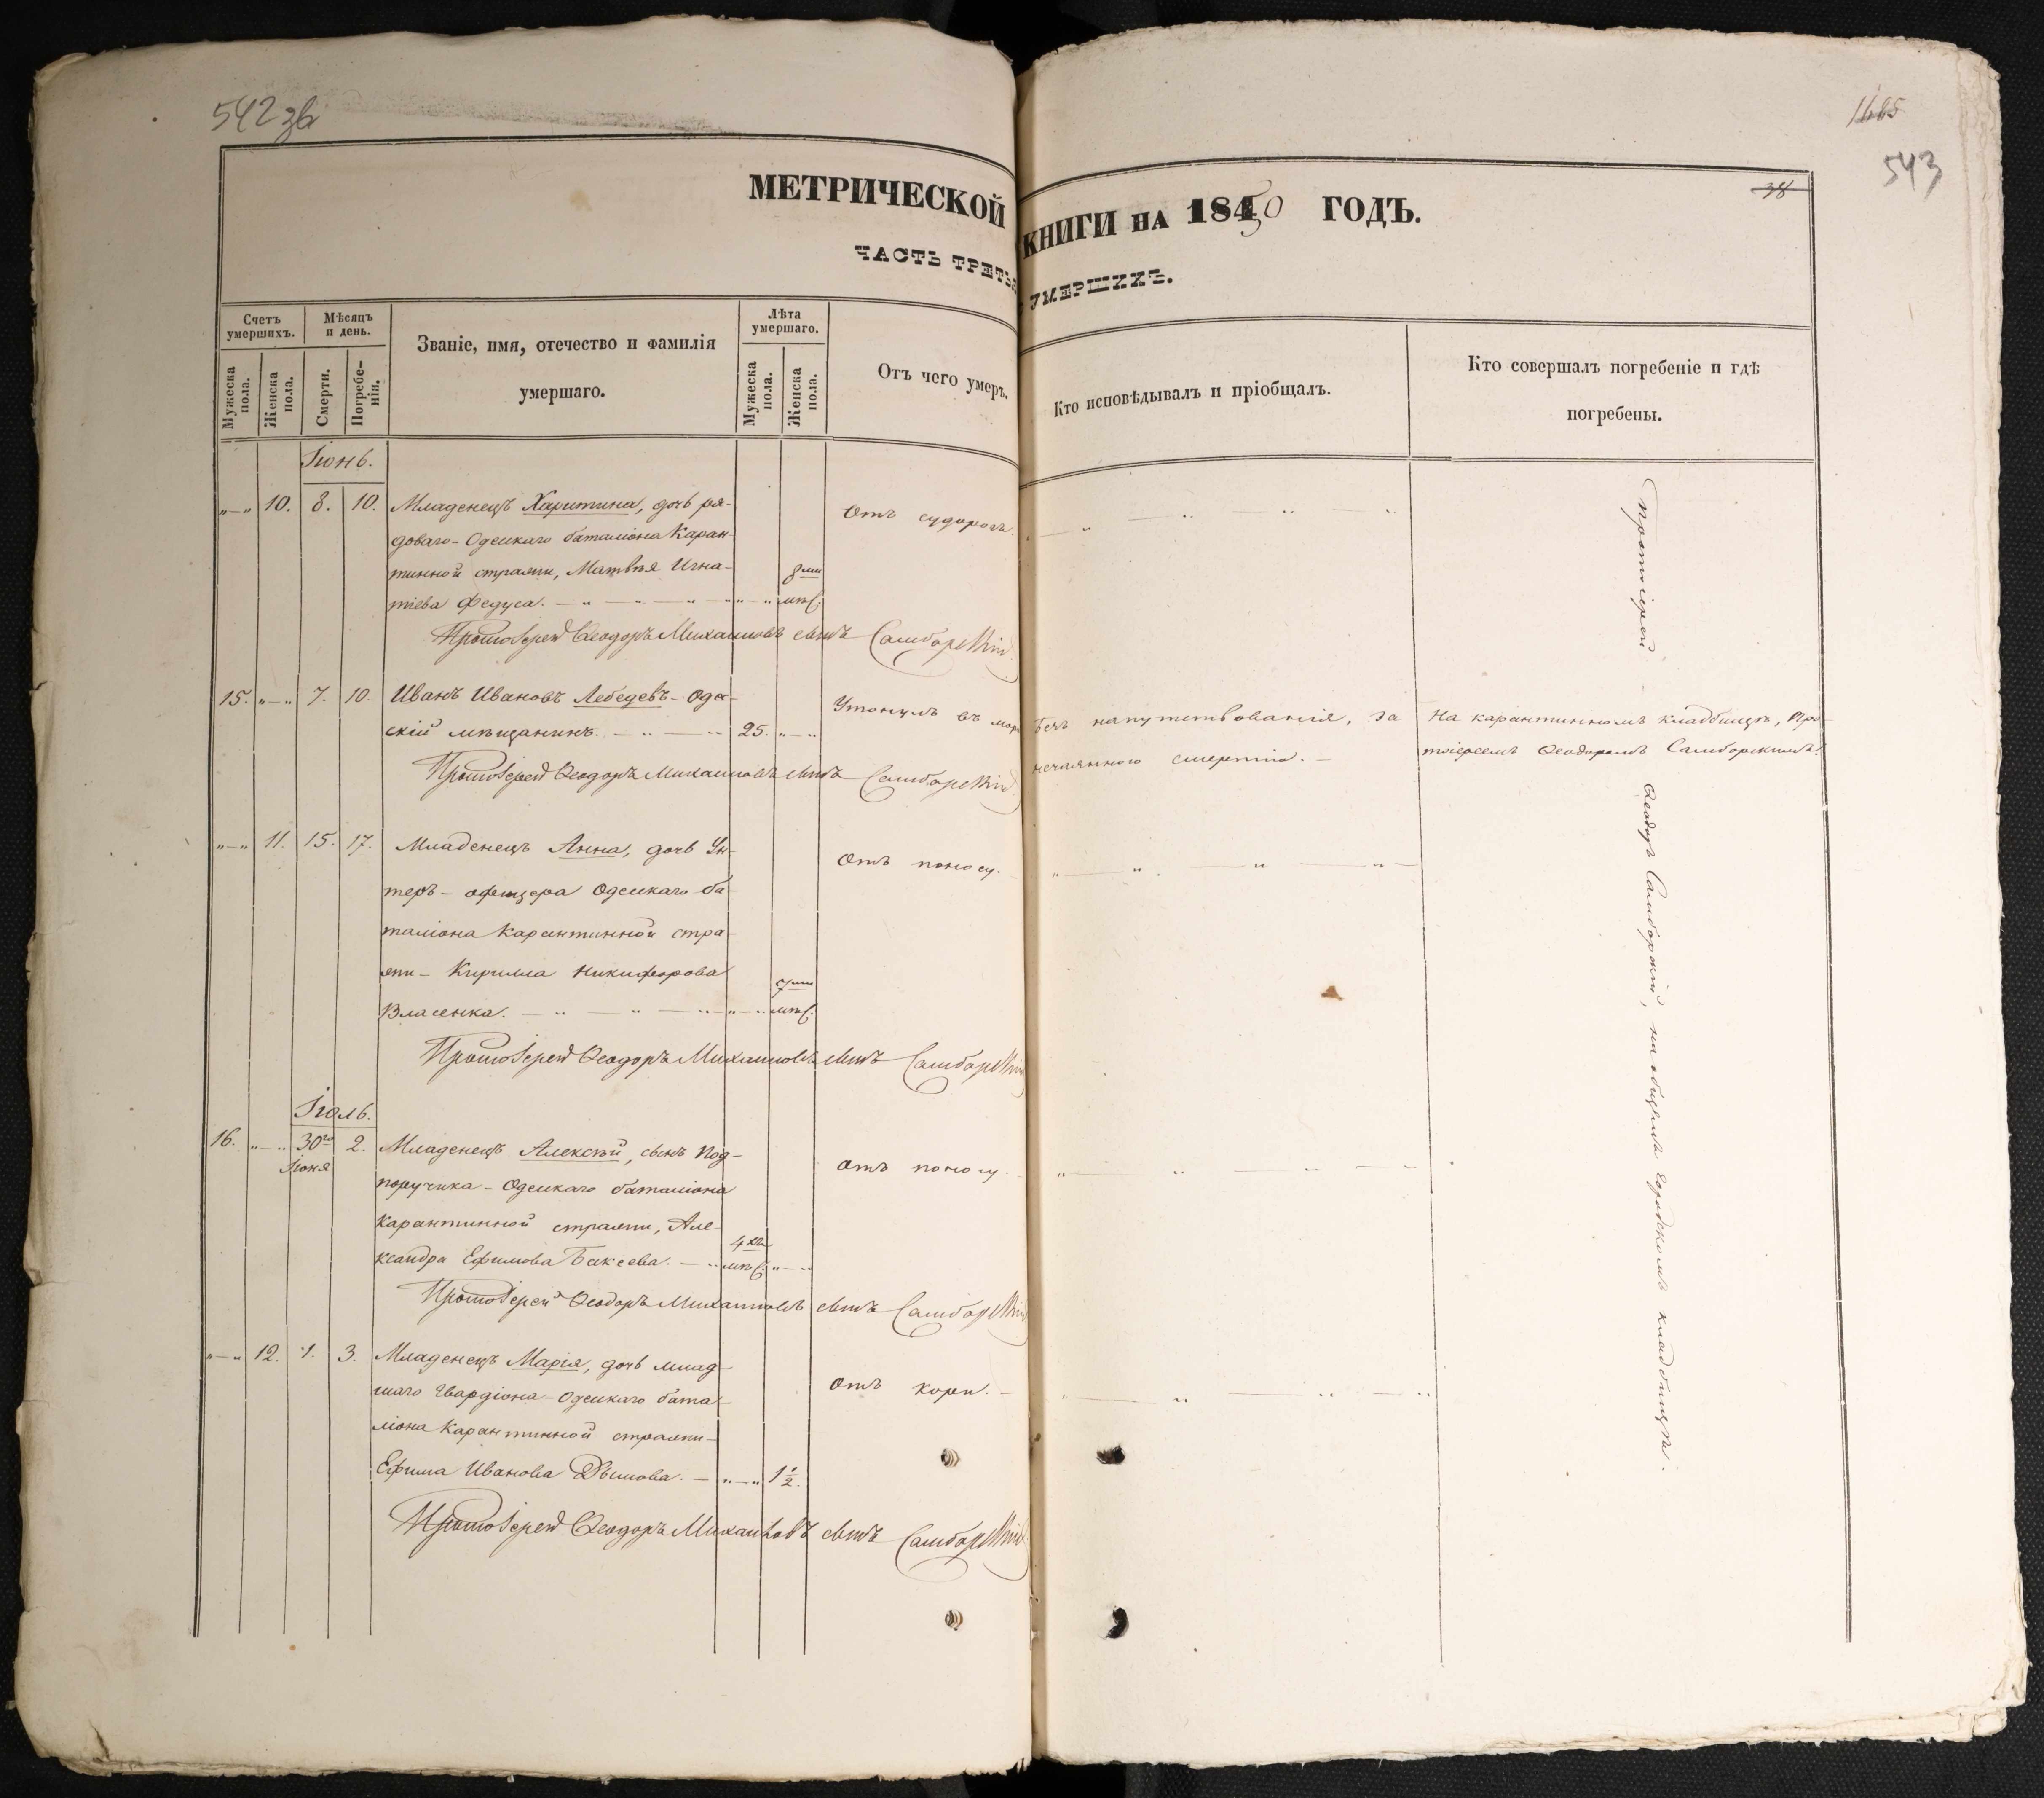 542 зв
1665
543
38
МЕТРИЧЕСКОЙ КНИГИ НА 1850 ГОДЪ.
ЧАСТЬ ТРЕТЬЯ УМЕРШИХЪ.
Счетъ умершихъ.
Мѣсяцъ и день.
Званіе, имя, отечество и фамилія
умершаго.
Лѣта умершаго.
Отъ чего умеръ.
Кто исповѣдывалъ и пріобщалъ.
Кто совершалъ погребеніе и гдѣ
погребены.
Мужеска пола.
Женска пола.
Смерти.
Погребенія.
Мужеска пола.
Женска пола.
Іюнь.
"—" 10. 8. 10. Младенецъ Харитина, дочь ря- Отъ судорогъ.
доваго - Одескаго баталіона Каран-
тинной стражи, Матвѣя Игна- 8ми
тіева Федуса. — " — " — " — " мѣс.
ПротоІерей Ѳеодоръ Михаиловъ сынъ Самборскій
15. "—" 7. 10. Иванъ Ивановъ Лебедевъ - Оде- Утонулъ въ морѣ Безъ напутствованія, за На карантинномъ кладбищѣ, Про-
скій мѣщанинъ. — " — 25. "—" нечаянною смертію. — тоіереемъ Ѳеодоромъ Самборскимъ.
ПротоІерей Ѳеодоръ Михаиловъ сынъ Самборскій
"—" 11. 15. 17. Младенецъ Анна, дочь Ун- Отъ поносу.
теръ - офицера Одескаго ба-
таліона Карантинной стра-
жи - Кирилла Никифорова 7ми
Власенка. — " — " — " — " мѣс.
ПротоІерей Ѳеодоръ Михаиловъ сынъ Самборскій
Іюль.
16. "—" 30го 2. Младенецъ Алексѣй, сынъ Под- Отъ поносу.
Іюня
поручика - Одескаго баталіона
Карантинной стражи, Але- 4хъ
ксандра Ефимова Бакеева. — " мѣс. "—"
ПротоІерей Ѳеодоръ Михаиловъ сынъ Самборскій
"—" 12. 1. 3. Младенецъ Марія, дочь млад- Отъ кори. —
шаго Гвардіона - Одескаго бата-
ліона Карантинной стражи -
Ефима Иванова Дымова. — "—" 1½.
ПротоІерей Ѳеодоръ Михаиловъ сынъ Самборскій
Протоіерей Ѳеодоръ Самборскій, на общемъ городскомъ кладбищѣ.